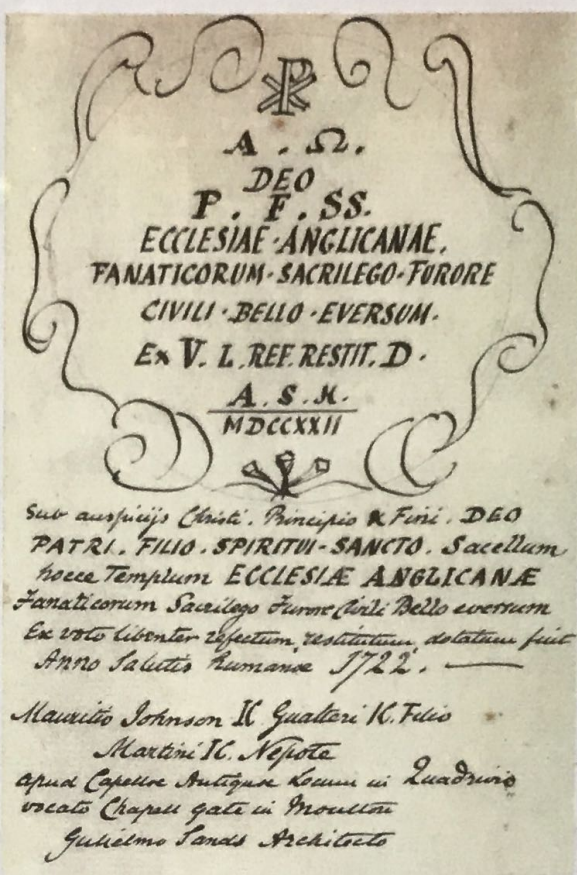 ☧
A . Ω.
DEO
P . F . SS.
ECCLESIAE · ANGLICANAE.
FANATICORUM · SACRILEGO · FURORE
CIVILI · BELLO · EVERSUM ·
Ex V. L. REF. RESTIT. D ·
A. S. H.
MDCCXXII
Sub auspicijs Christi. Principio & Fini. DEO
PATRI. FILIO. SPIRITUI-SANCTO. Sacellum
hocce Templum ECCLESIÆ ANGLICANÆ
Fanaticorum Sacrilego Furore Civili Bello eversum
Ex voto libenter refectum, restitutum, dotatum fuit
Anno Salutis humanæ 1722. —
Mauritio Johnson IC Gualteri IC. Filio
Martini IC. Nepote
apud Capellæ Antiquæ Locum in Quadrivio
vocato Chapell gate in Moulton
Gulielmo Sands Architecto